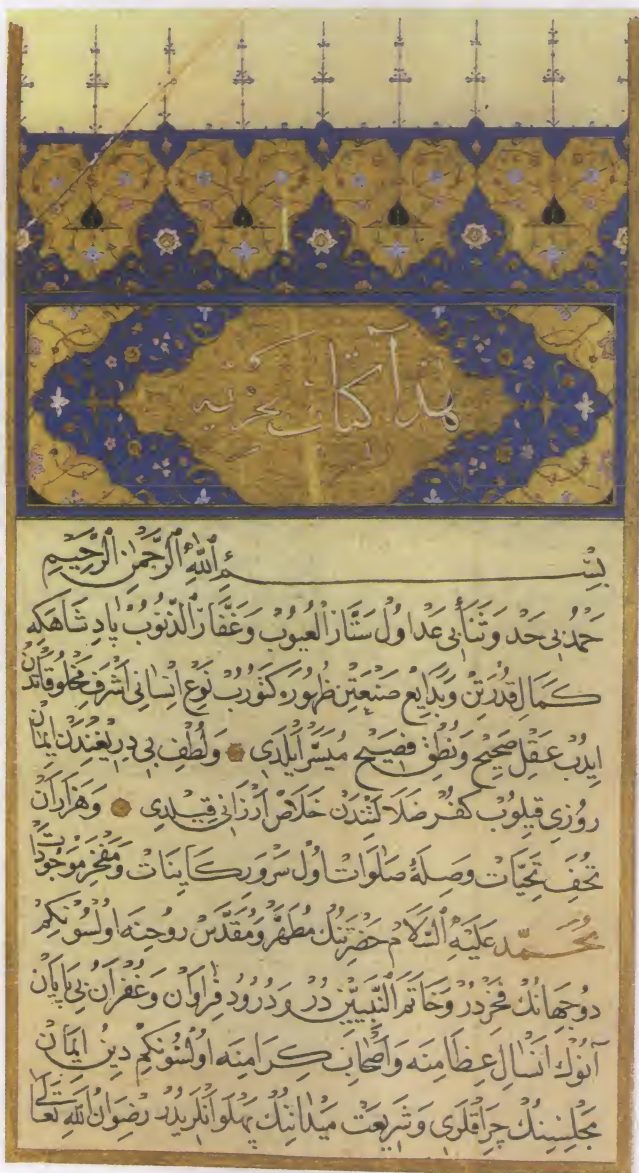 هذا كتاب بحريه
بِسْمِ اللّٰهِ الرَّحْمٰنِ الرَّحِيمِ
حَمْدُ بِی حَد وَثَنَاءُ بِی عَد اوُل سَتَّارُ الْعُيُوبْ وَغَفَّارُ الذُّنُوبْ پَادِشَاهَكِه
كَمَالِ قُدْرَتِنْ وَبَدَايِعِ صَنْعَتِنْ ظُهُورَه كَتُورُبْ نَوْعِ اِنْسَانِی اَشْرَفِ مَخْلُوقَاتْدَنْ
اِيدُبْ عَقْلِ صَحِيحْ وَنُطْقِ فَصِيحْ مُيَسَّرْ اَيْلَدِی وَلُطْفِ بِی دِرِيغِنْدَنْ اِيمَانْ
رُوزِی قِيلُوبْ كُفْر ضَلَالَتْنْدَنْ خَلَاصْ اَرْزَانِی قِيلْدِی وَهَزَارَانْ
تُحَفِ تَحِيَّاتْ وَصِلَهٔ صَلَوَاتْ اوُل سَرْوَرِ كَايِنَاتْ وَمَفْخَرِ مَوْجُودَاتْ
مُحَمَّدْ عَلَيْهِ السَّلَامْ حَضْرَتِنُكْ مُطَهَّرْ وَمُقَدَّسْ رُوحِنَه اوُلْسُونْكِمْ
دُوجِهَانُكْ فَخْرِدُرْ وَخَاتَمُ النَّبِيِّينْ دُرْ وَدُرُودِ فِرَاوَانْ وَغُفْرَانِ بِی پَايَانْ
آنُوكْ اَنْسَالِ عِظَامِنَه وَاَصْحَابِ كِرَامِنَه اوُلْسُونْكِمْ دِينِ اِيمَانْ
مَجْلِسِنِنُكْ چِرَاقْلَرِی وَشَرِيعَتْ مَيْدَانِنُكْ پَهْلَوَانْلَرِيدُرْ رِضْوَانُ اللّٰهِ تَعَالٰی